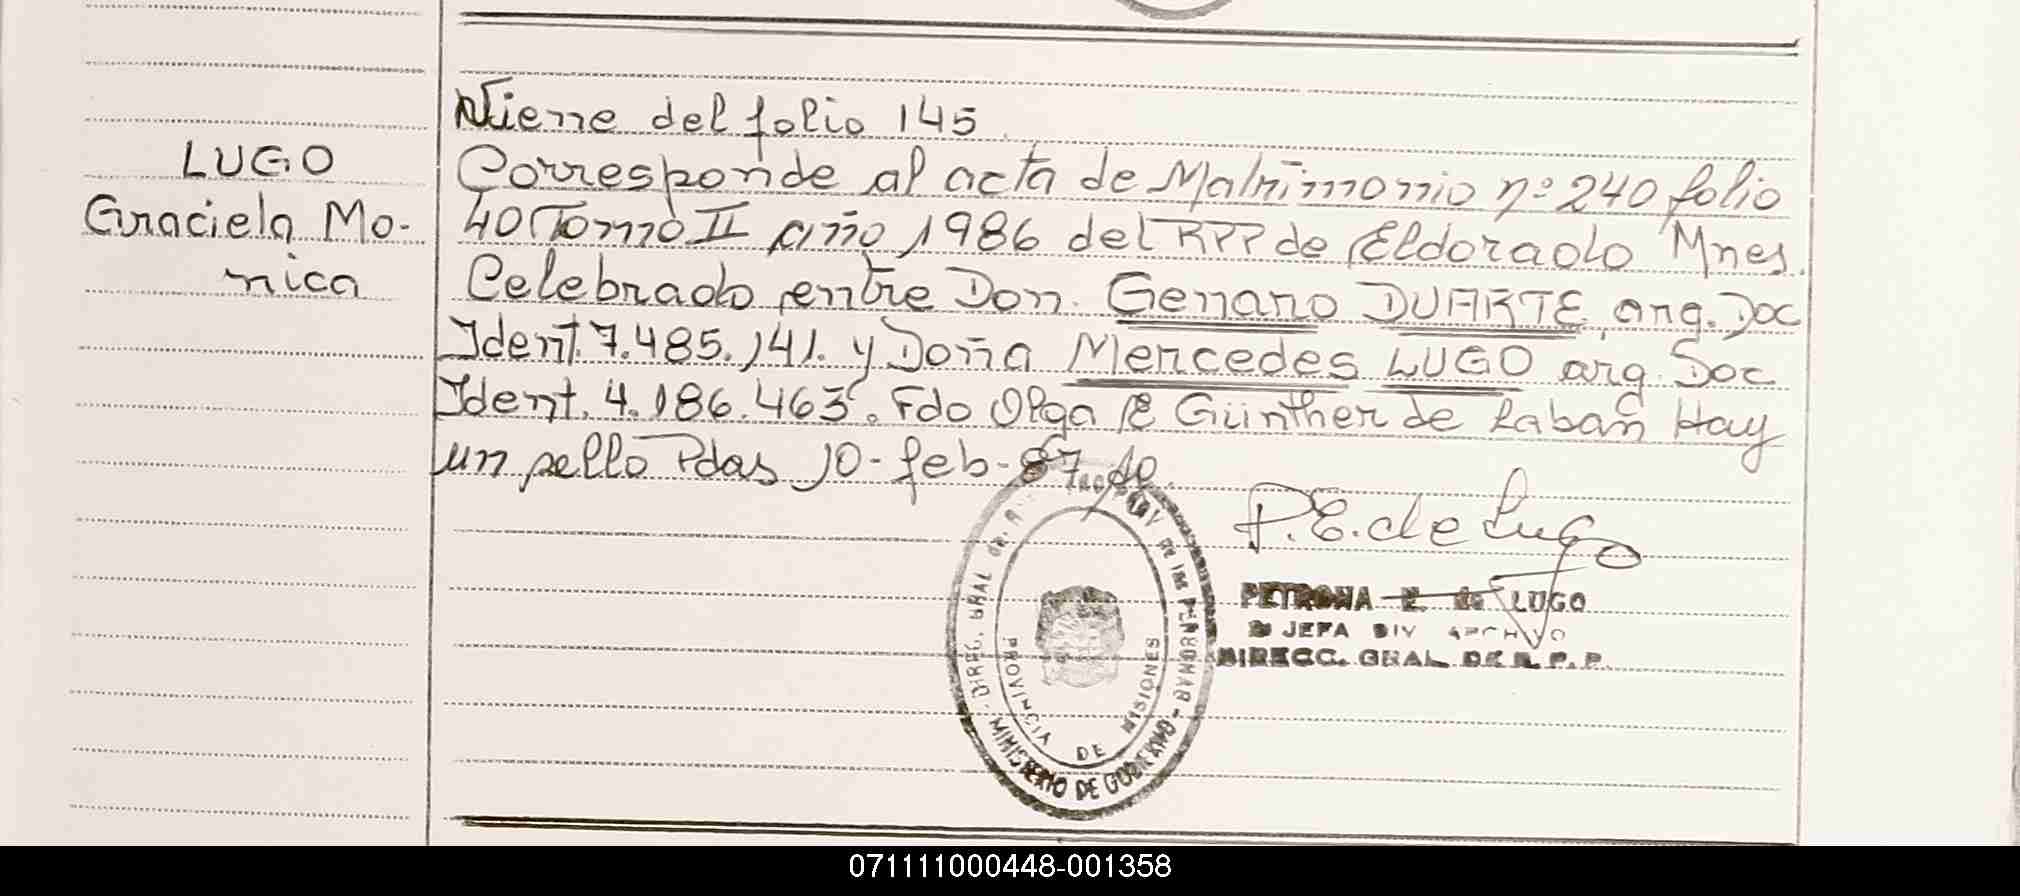 LUGO
Graciela Mo-
nica
Viene del folio 145
Corresponde al acta de Matrimonio nº 240 folio
40 Tomo II año 1986 del RPP de Eldorado Mnes.
Celebrado entre Don. Genaro DUARTE, arg. Doc
Ident. 7.485.141. y Doña Mercedes LUGO arg. Doc
Ident. 4.186.463. Fdo Olga E Günther de Raban Hay
un sello Pdas 10-feb-87.
P.E. de Lugo
PETRONA E. de LUGO
JEFA DIV ARCHIVO
DIRECC. GRAL DE R.P.P.
DIREC. GRAL de las PERSONAS - MINISTERIO DE GOBIERNO
PROVINCIA DE MISIONES
071111000448-001358